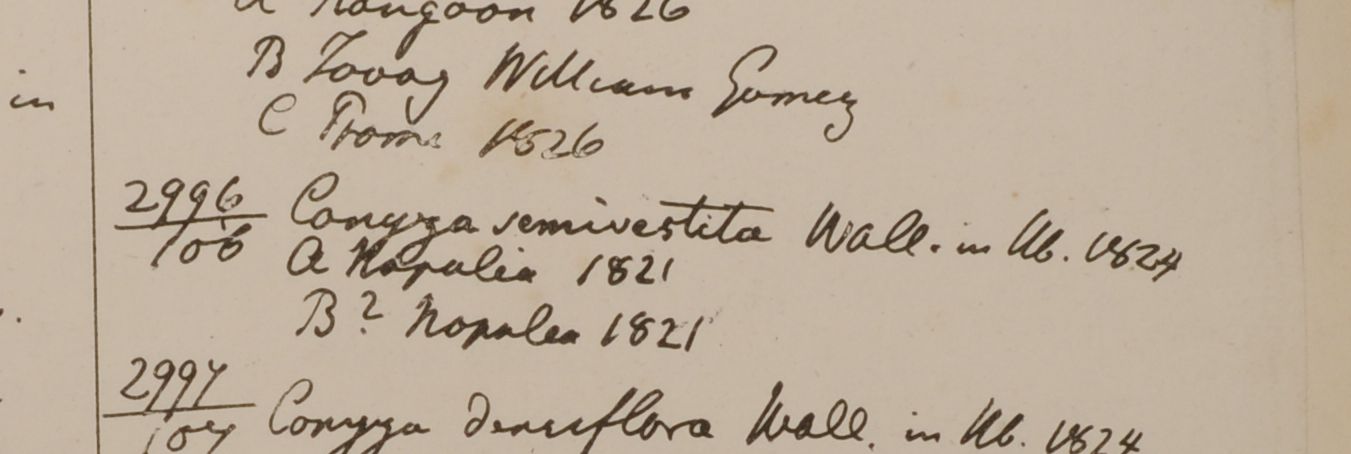 a Rangoon 1826
in
B Tavoy William Gomez
C Prome 1826
2996 Conyza semivestita Wall. in Hb. 1824
106 a Napalia 1821
B? Napalea 1821
2997
107 Conyza densiflora Wall. in Hb. 1824